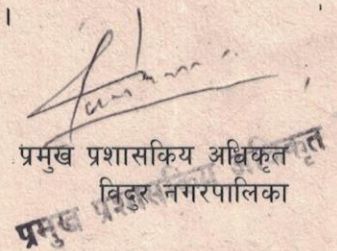 प्रमुख प्रशासकिय अधिकृत
विदुर नगरपालिका
प्रमुख प्रशासकिय अधिकृत